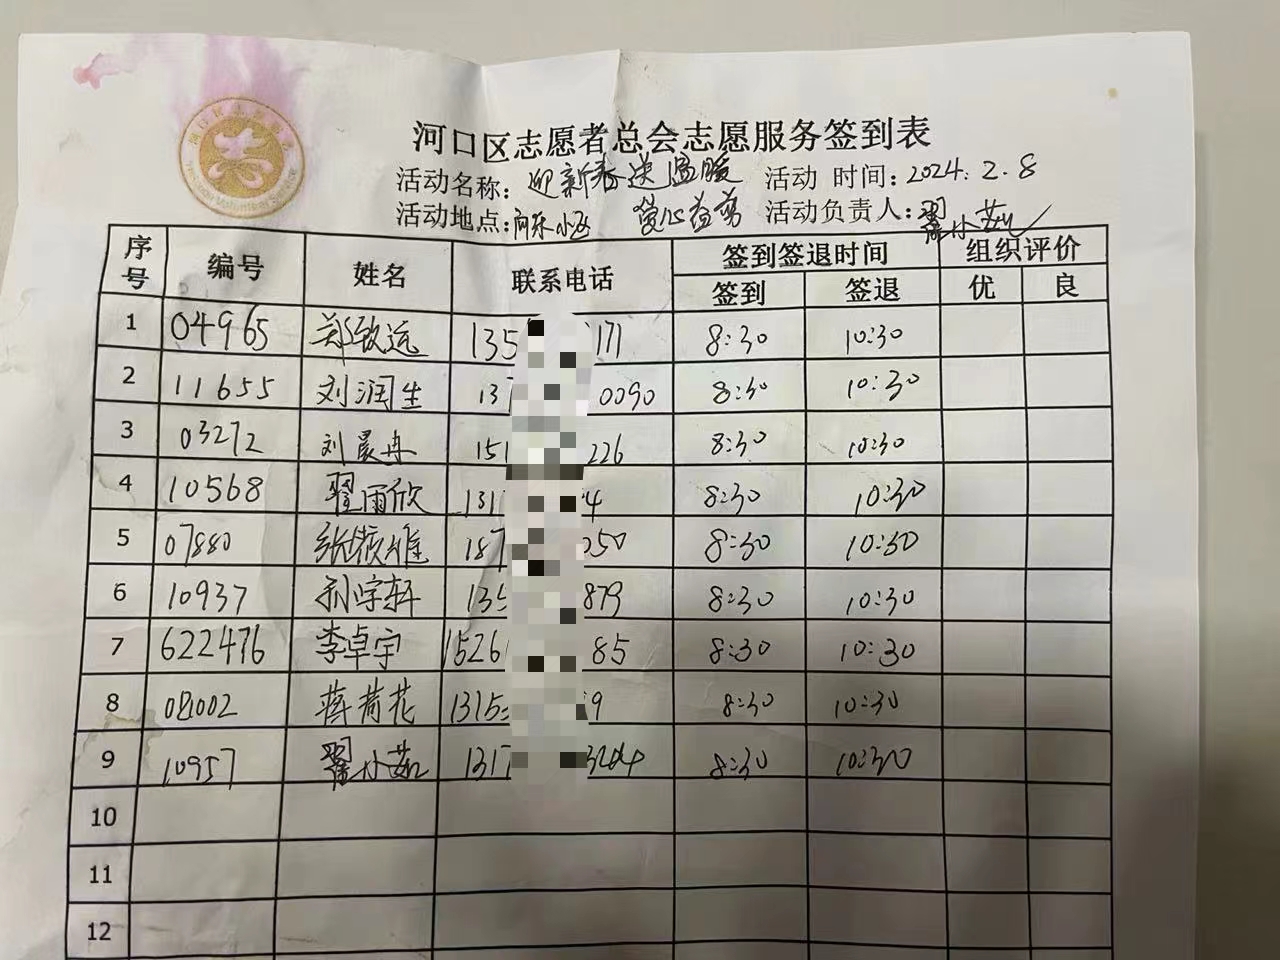 河口区志愿者总会志愿服务签到表
活动名称：迎新春送温暖 活动 时间：2024.2.8
活动地点：小区 爱心益剪 活动负责人：翟小茹
序号 编号 姓名 联系电话 签到签退时间 组织评价
签到 签退 优 良
1 04965 郑致远 135 171 8:30 10:30
2 11655 刘润生 13 0090 8:30 10:30
3 03272 刘晨冉 151 226 8:30 10:30
4 10568 翟雨欣 131 4 8:30 10:30
5 07880 张 维 187 050 8:30 10:30
6 10937 孙宇轩 135 879 8:30 10:30
7 622476 李卓宇 15261 85 8:30 10:30
8 08002 蒋荷花 1315 9 8:30 10:30
9 10957 翟小茹 1317 3204 8:30 10:30
10
11
12